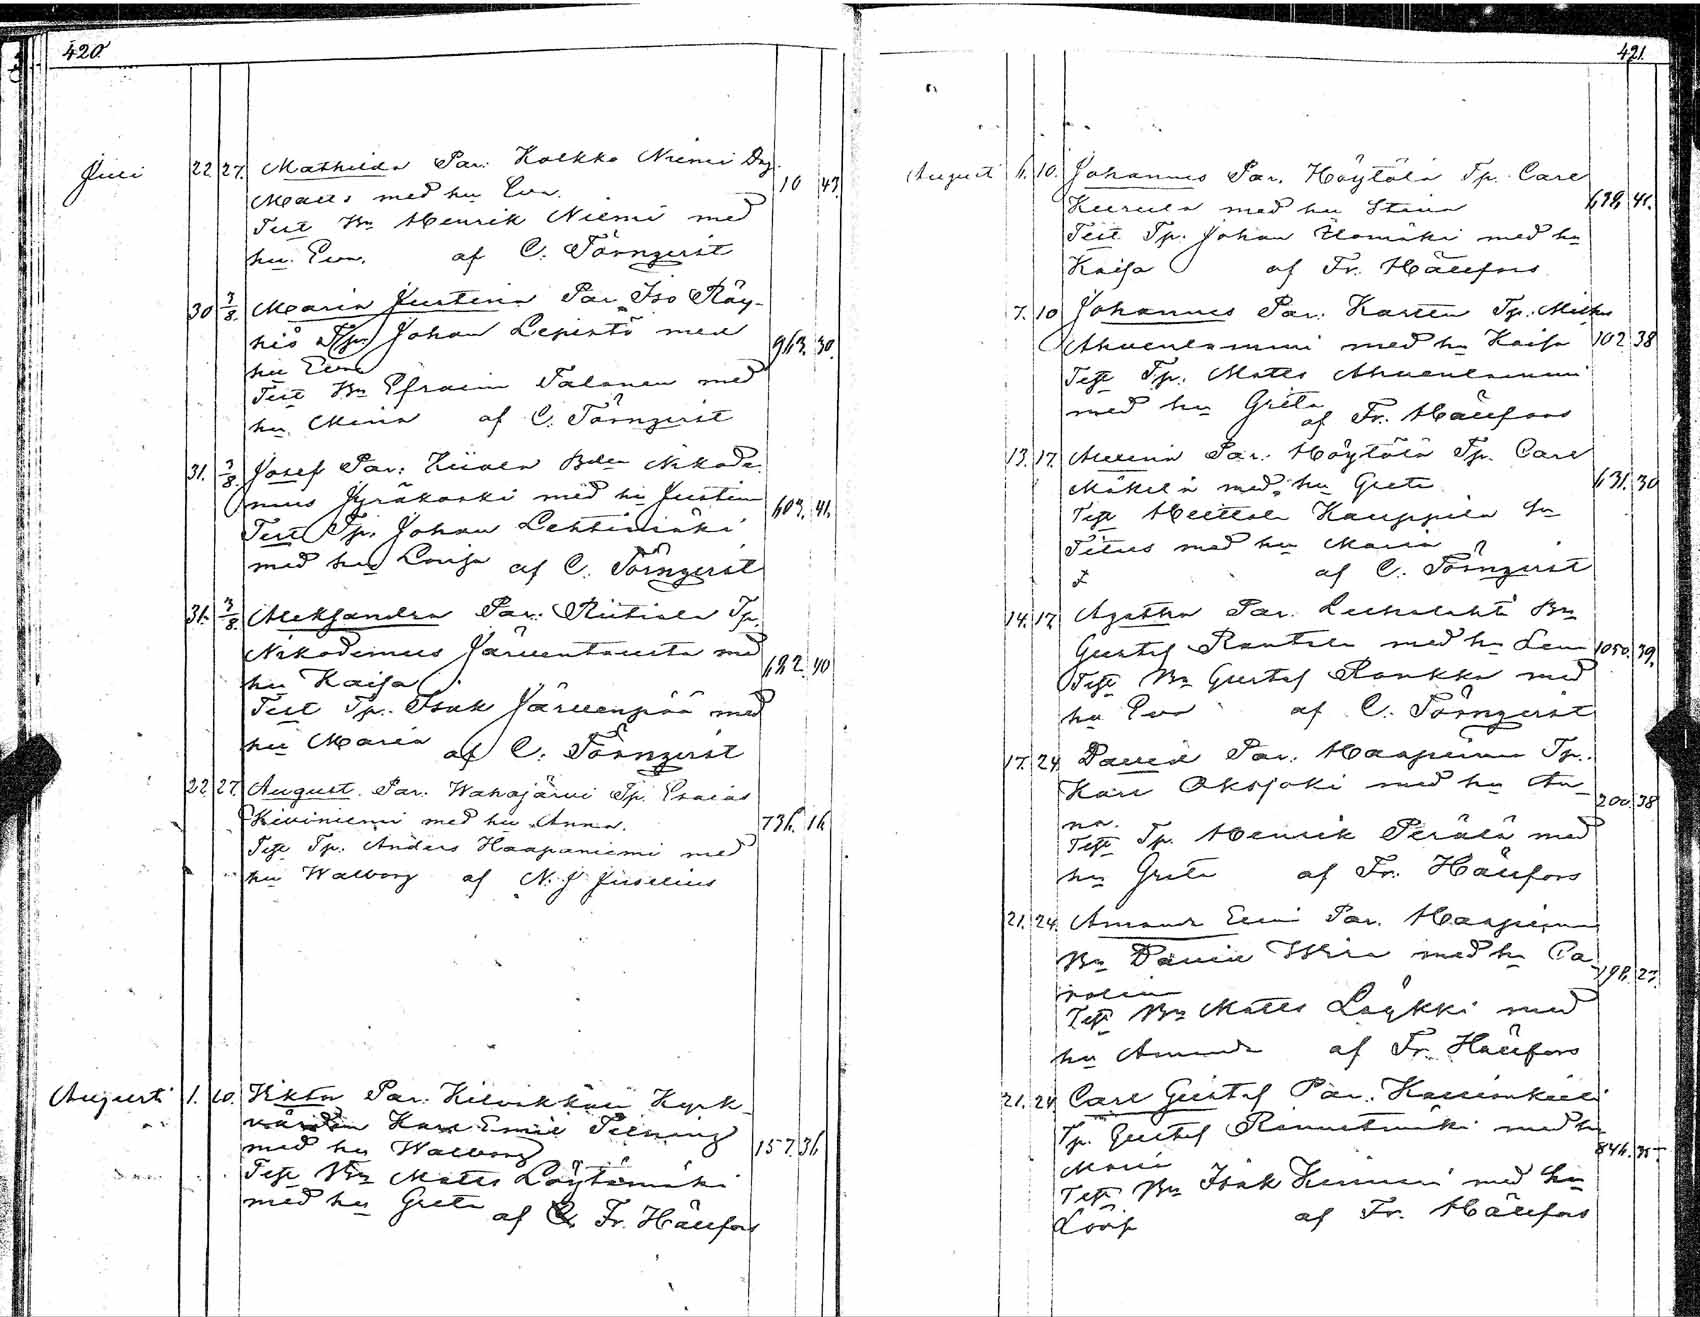 420.
Juli 22 27. Mathilda Par: Kolkko Niemi Dag.
Matts med hu Eva. 10 43.
Test Bn Henrik Niemi med
hu. Eva. af C. Törnqvist
30 3/8. Maria Justina Par. Iso Röy-
hiö Tp. Johan Lepistö med 963. 30.
hu Eva
Test Bn Efraim Talonen med
hu. Miina af C. Törnqvist
31. 3/8. Josef Par: Bden Nikode-
mus Jyräkoski med hu Justina 603. 41.
Test Tp. Johan Lehtimäki
med hu Lovisa af C. Törnqvist
31. 3/8. Aleksandra Par: Riitiala Tp.
Nikodemus Järventausta med 682. 40
hu Kaisa
Test Tp. Isak Järvenpää med
hu Maria af C. Törnqvist
22. 27. August. Par. Wahojärvi Tp. Esaias
Kiviniemi med hu Anna. 736. 16.
Test Tp. Anders Haapaniemi med
hu Walborg af N. J. Juselius
Augusti 1. 10. Viktor Par. Kilvakkala Kyrk-
värden Karl Emil Pelning
med hu Walborg 157. 36.
Test Bn Matts Löytömäki
med hu Greta af Fr. Hällfors
421.
Augusti 6. 10. Johannes Par. Höytölä Tp. Carl
Keurula med hu Stina 628. 41.
Test Tp. Johan Ylömäki med hu
Kaisa af Fr. Hällfors
7. 10 Johannes Par: Karttu Tp. Mikko
Ahvenlammi med hu Kaisa 102 38
Test Tp. Matts Ahvenlammi
med hu Greta af Fr. Hällfors
13. 17. Alviina Par: Höytölä Tp. Carl
Mäkelä med hu Greta 631. 30
Test Heittola Kauppila
Titus med hu Maria
af C. Törnqvist
14. 17. Agatha Par. Luhalahti Bn
Gustaf Rantala med hu Lena 1050. 39.
Test Bn Gustaf Rankka med
hu Eva af C. Törnqvist
17. 24. David Par. Haapimaa Tp.
Karl Oksjoki med hu An- 200. 38
na.
Test Tp. Henrik Perälä med
hu Greta af Fr. Hällfors
21. 24. Amanda Elmi Par. Haapimaa
Bn David Wira med hu Ca- 198. 27.
rolina
Test Bn Matts Löykki med
hu Amanda af Fr. Hällfors
21. 24 Carl Gustaf Par. Kallionkieli
Tp. Gustaf Rinnetmäki med hu
Maria 846. 35.
Test Bn Isak med hu
Lovisa af Fr. Hällfors